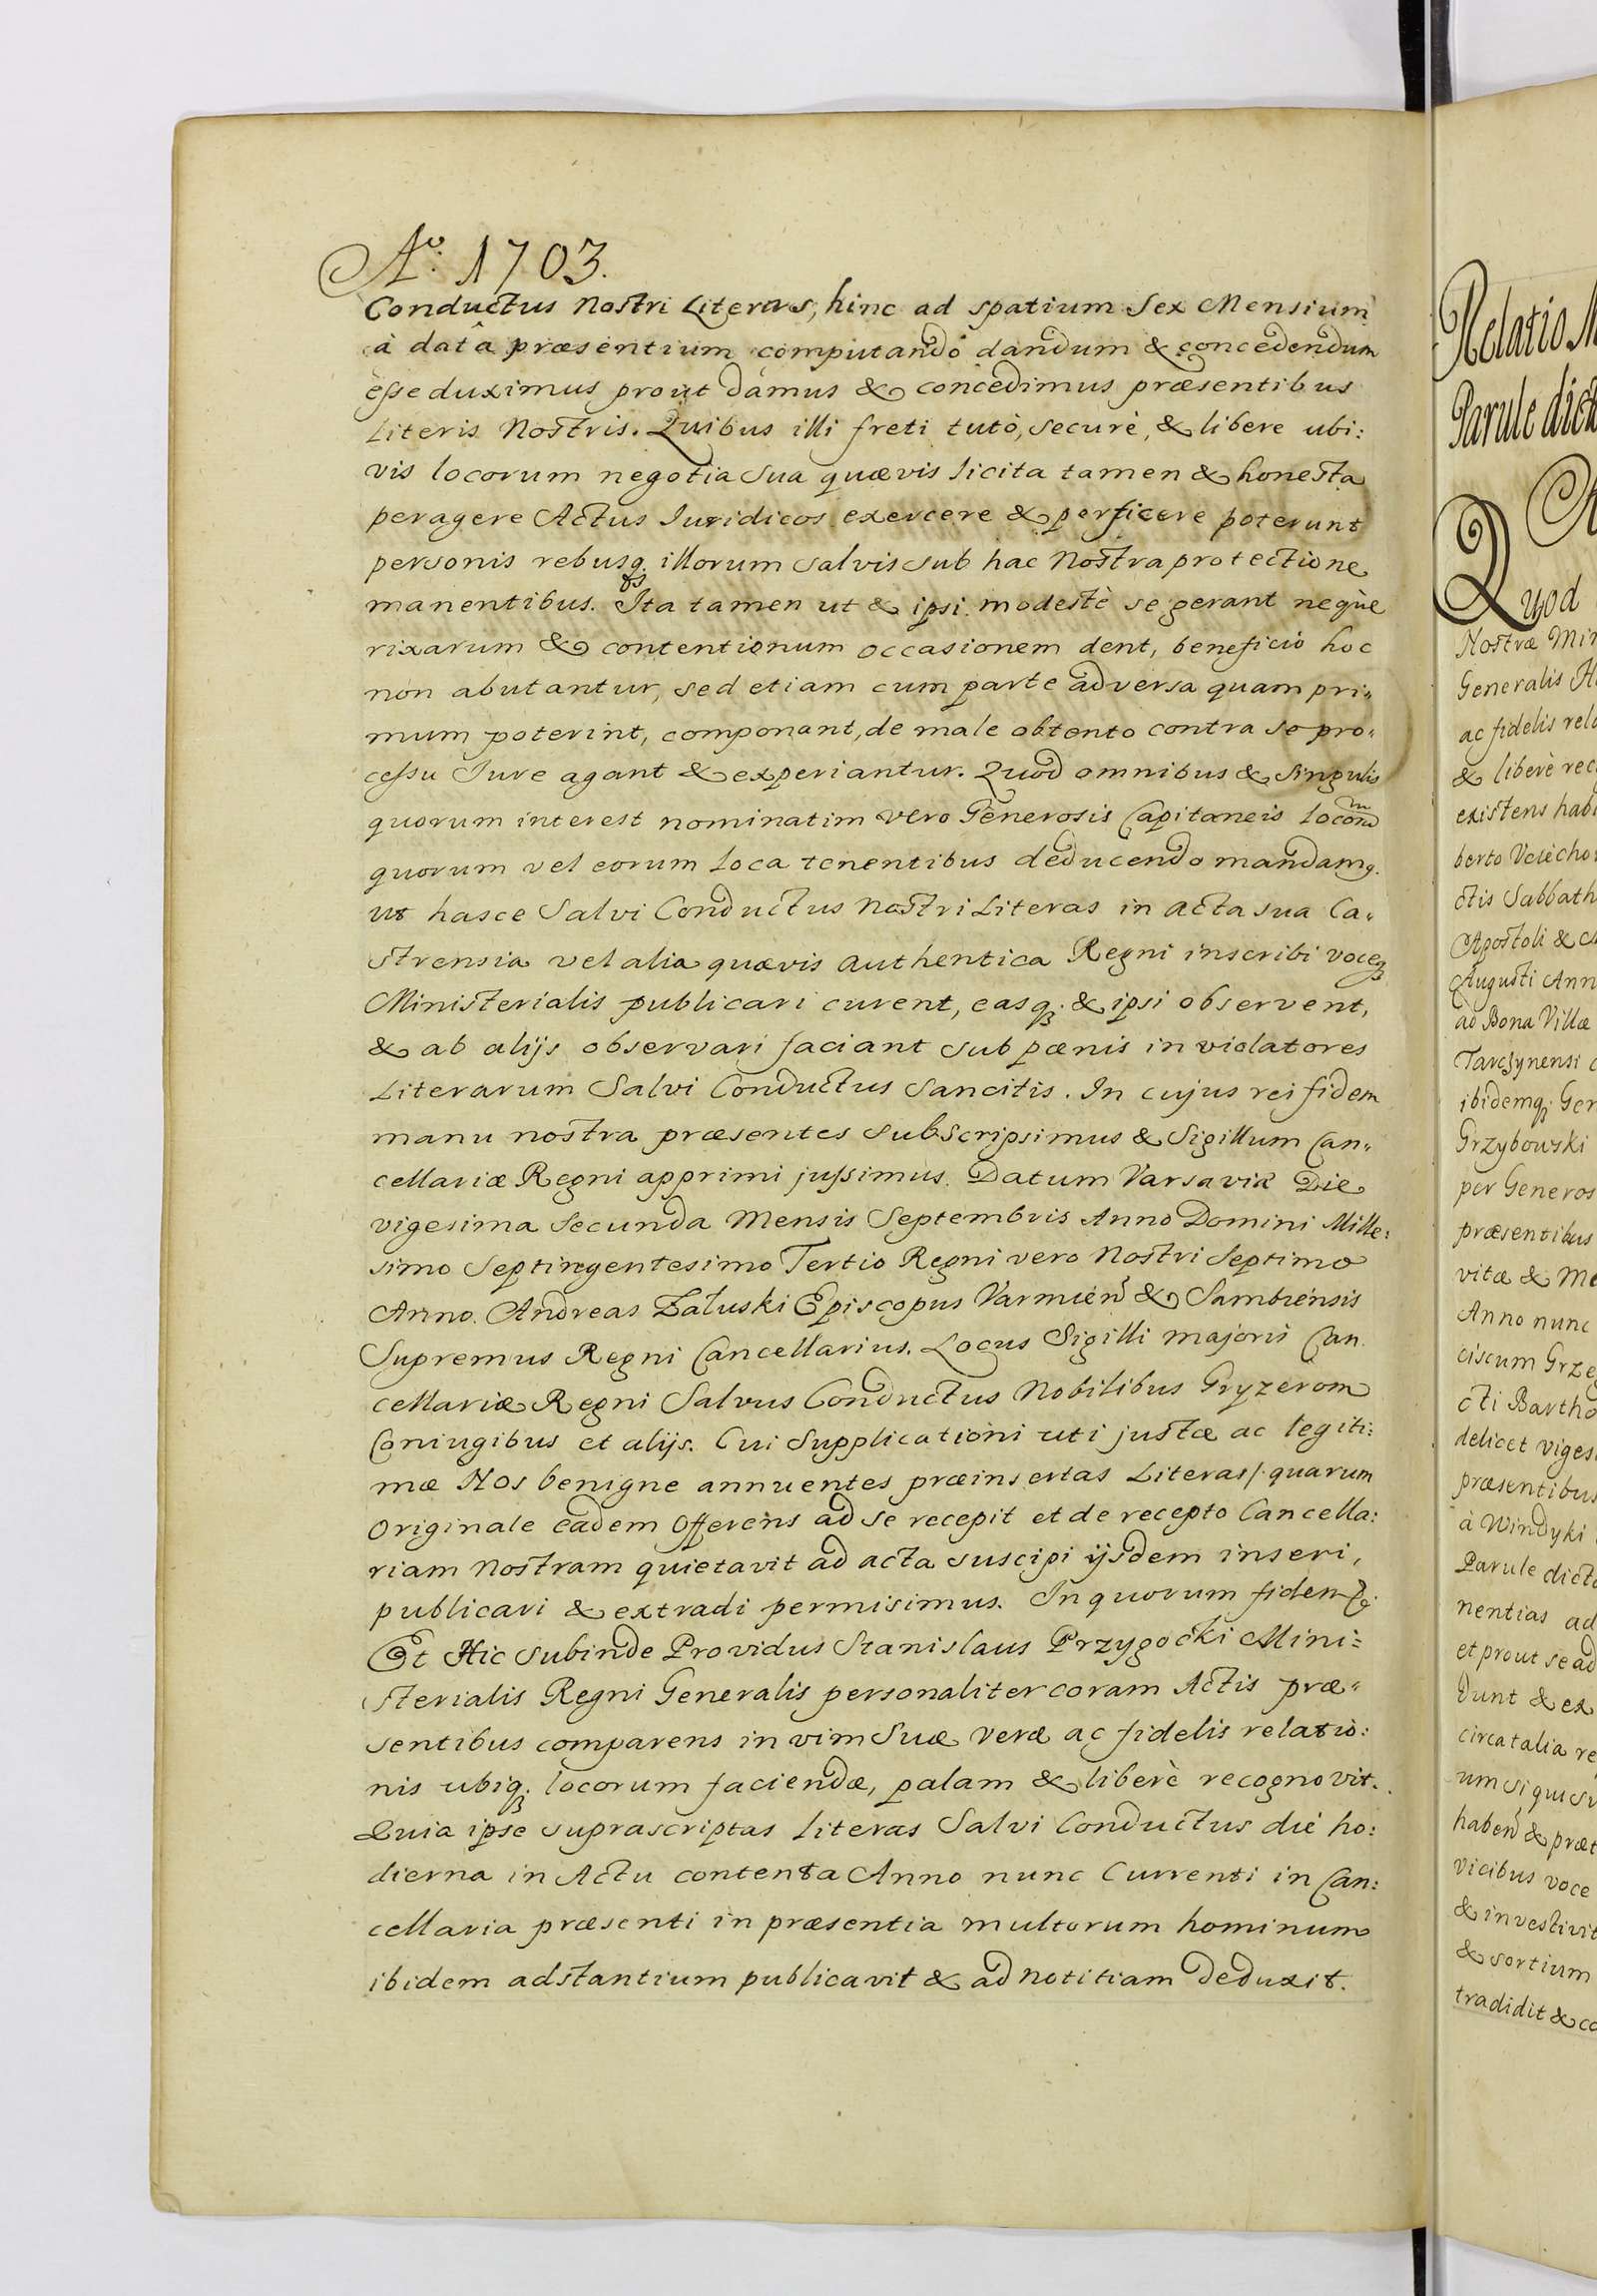 Aº. 1703.
Conductus Nostri Literas, hinc ad spatium Sex Mensium
à datâ præsentium computando dandum & concedendum
esse duximus prout damus & concedimus præsentibus
Literis Nostris. Quibus illi freti tutò, securè, & libere ubi:
vis locorum negotia sua quævis licita tamen & honesta
peragere Actus Iuridicos exercere & perficere poterunt
personis rebusq. illorum salvis sub hac Nostra protectione
manentibus. Ita tamen ut & ipsi modestè se gerant neqùe
rixarum & contentionum occasionem dent, beneficio hoc
non abutantur, sed etiam cum parte adversa quam pri„
mum poterint, componant, de male obtento contra se pro„
cessu Iure agant & experiantur. Quod omnibus & singulis
quorum interest nominatim vero Generosis Capitaneis
quorum vel eorum loca tenentibus deducendo mandamq.
ut hasce Salvi Conductus Nostri Literas in acta sua Ca„
strensia vel alia quævis authentica Regni inscribi voceq
Ministerialis publicari curent, easq. & ipsi observent,
& ab alijs observari faciant sub pœnis in violatores
Literarum Salvi Conductus sancitis. In cujus rei fidem
manu nostra præsentes subscripsimus & Sigillum Can„
cellariæ Regni apprimi jussimus. Datum Varsaviæ Die
vigesima Secunda Mensis Septembris Anno Domini Mille:
simo Septingentesimo Tertio Regni vero Nostri Septimo
Anno. Andreas Załuski Episcopus Varmien & Sambiensis
Supremus Regni Cancellarius. Locus Sigilli majoris Can
cellariæ Regni Salvus Conductus Nobilibus Gryzerom
Coniugibus et alijs. Cui Supplicationi uti justæ ac legiti:
mæ Nos benigne annuentes præinsertas Literas /. quarum
Originale eadem Offerens ad se recepit et de recepto Cancella:
riam Nostram quietavit ad acta suscipi ijsdem inseri,
publicari & extradi permisimus. In quorum fidem &.
Et Hic subinde Providus Stanislaus Przygocki Mini:
sterialis Regni Generalis personaliter coram Actis præ„
sentibus comparens in vim Suæ veræ ac fidelis relatio:
nis ubiq. locorum faciendæ, palam & liberè recognovit.
Quia ipse suprascriptas Literas Salvi Conductus die ho:
dierna in Actu contenta Anno nunc Currenti in Can:
cellaria præsenti in præsentia multorum hominum
ibidem adstantium publicavit & ad notitiam deduxit.
Relatio
Parule
Quod
Nostræ
Generalis
ac fidelis
& liberè
existens
ctis
Apostoli &
Augusti
ad Bona Villæ
ibidemq.
Grzybowski
per
præsentibus
vitæ &
Anno nunc
ciscum
cti
delicet
præsentibus
à Windyki
Parule
nentias ad
et prout se ad
dunt & ex
circa talia
um si quis
haben &
vicibus voce
& investivit
& sortium
tradidit &